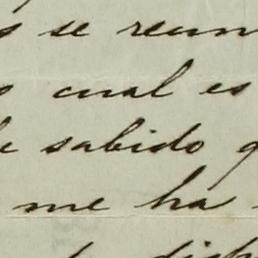 se reun
cual es
sabido q
me ha